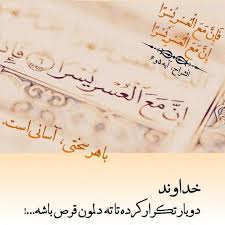 فَإِنَّ مَعَ الْعُسْرِ يُسْرًا
إِنَّ مَعَ الْعُسْرِ يُسْرًا
انشراح، آیه ۵ و ۶
إِنَّ مَعَ الْعُسْرِ يُسْرًا
با هر سختی، آسانی است.
خداوند
دوبار تکرار کرده تا ته دلمون قرص باشه...!